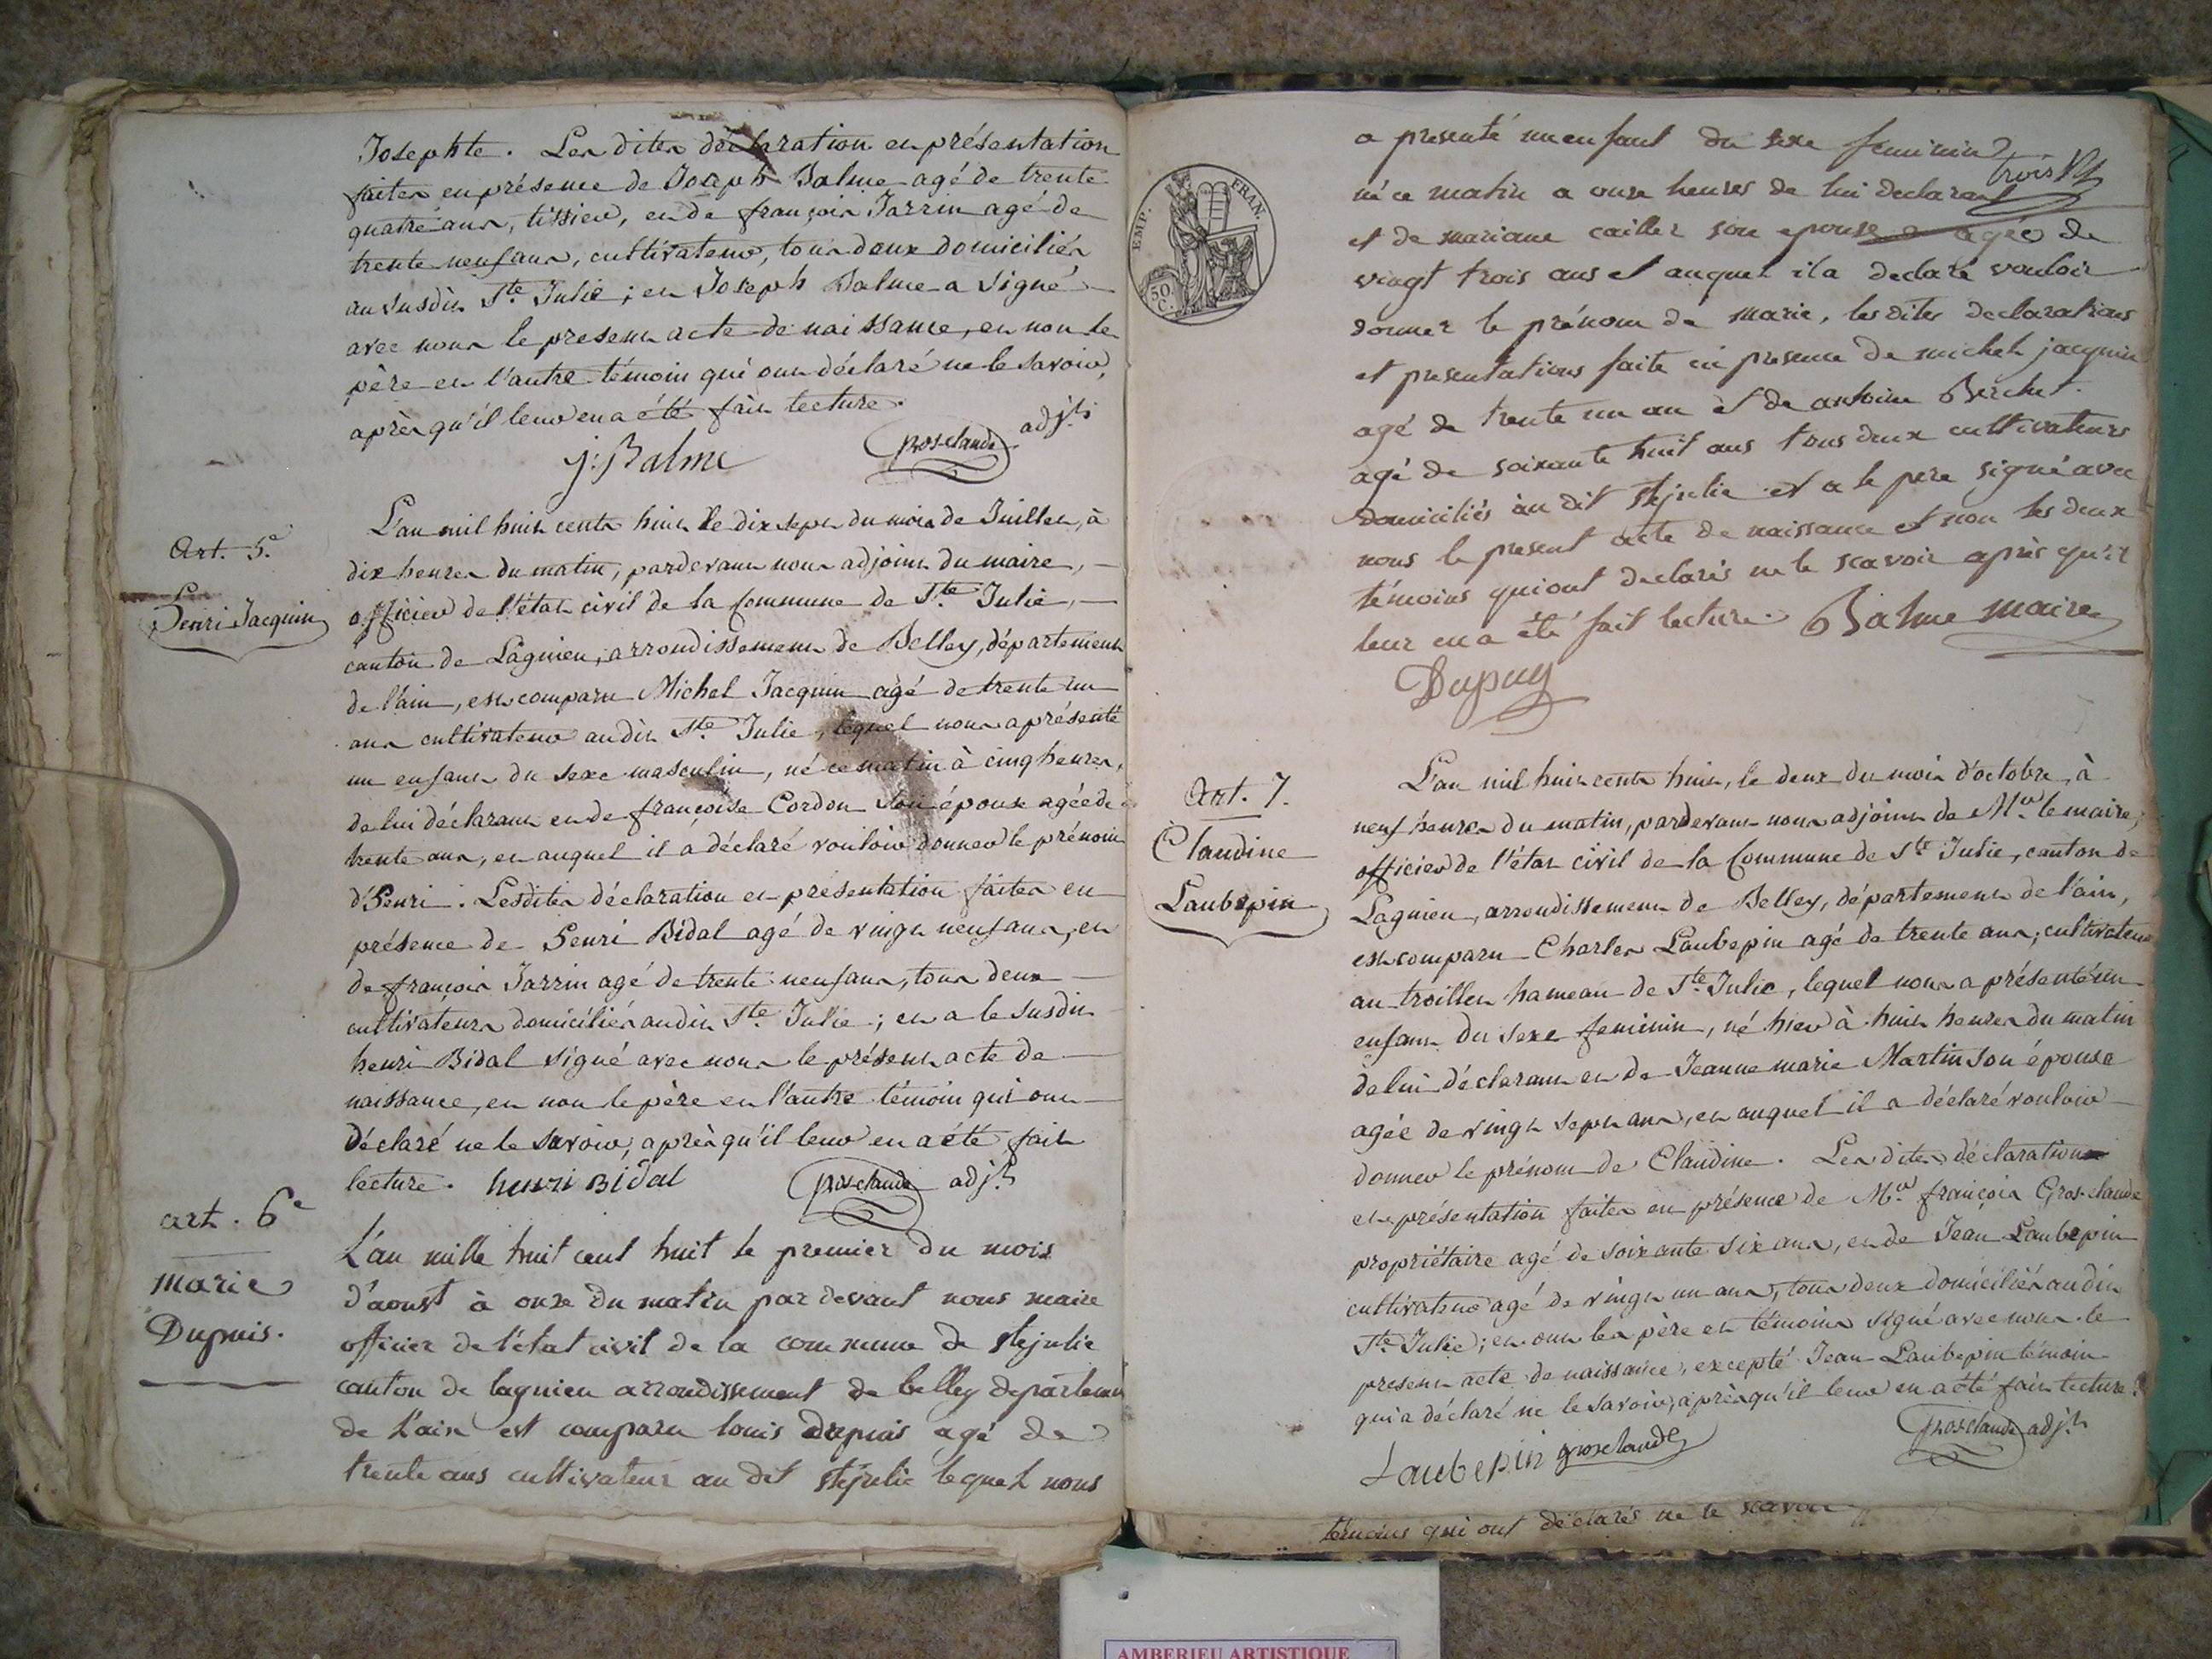 Josephte. Les dites déclaration et présentation
faites en présence de Joseph Balme agé de trente
quatre ans, tissier, et de françois Jarrin agé de
trente neuf ans, cultivateur, tous deux domiciliés
au susdit Ste. Julie ; et Joseph Balme a signé
avec nous le present acte de naissance, et non le
père et l'autre témoin qui ont déclaré ne le savoir,
après qu'il leur en a été fait lecture.
j: Balme groselaude adjt.
Art. 5e.
Henri Jacquin
L'an mil huit cents huit le dix sept du mois de Juillet, à
dix heures du matin, pardevant nous adjoint du maire,
officier de l'état civil de la Commune de Ste. Julie,
canton de Lagnieu, arrondissement de Belley, département
de l'ain, est comparu Michel Jacquin agé de trente un
ans cultivateur audit Ste. Julie, lequel nous a présenté
un enfant du sexe masculin, né ce matin à cinq heures,
de lui déclarant et de françoise Cordon son épouse agée de
trente ans, et auquel il a déclaré vouloir donner le prénom
d'Henri. Lesdites déclaration et présentation faites en
présence de Henri Bidal agé de vingt neuf ans, et
de françois Jarrin agé de trente neuf ans, tous deux
cultivateurs domiciliés audit Ste. Julie ; et a le susdit
henri Bidal signé avec nous le présent acte de
naissance, et non le père et l'autre témoin qui ont
déclaré ne le savoir, après qu'il leur en a été fait
lecture. henri Bidal groselaude adjt.
art. 6e
marie
Dupuis.
L'an mille huit cent huit le premier du mois
d'aoust à onze du matin par devant nous maire
officier de l'état civil de la commune de ste julie
canton de lagnieu arrondissement de belley departement
de L'ain est comparu louis dupuis agé de
trente ans cultivateur au dit ste julie lequel nous
EMP. FRAN.
50 C.
a presenté un enfant du sexe feminin
trois
né ce matin a onze heures de lui declarant
et de mariane cailler son epouse agée de
vingt trois ans et auquel il a declaré vouloir
donner le prénom de marie, les dites declarations
et presentations faite en presence de michel jacquin
agé de trente un an et de antoine Berchet.
agé de soixante huit ans tous deux cultivateurs
domiciliés au dit ste julie et a le pere signé avec
nous le present acte de naissance et non les deux
témoins qui ont declarés ne le scavoir après qu'il
leur en a été fait lecture. Balme maire
Dupuy
Art. 7.
Claudine
Laubepin
L'an mil huit cents huit, le deux du mois d'octobre, à
neuf heures du matin, pardevant nous adjoint de Mr. le maire,
officier de l'état civil de la Commune de Ste Julie, canton de
Lagnieu, arrondissement de Belley, département de l'ain,
est comparu Charles Laubepin agé de trente ans, cultivateur
au troillet hameau de Ste. Julie, lequel nous a présenté un
enfant du sexe feminin, né hier à huit heures du matin
de lui déclarant et de Jeanne marie Martin son épouse
agée de vingt sept ans, et auquel il a déclaré vouloir
donner le prénom de Claudine. Les dites déclaration
et présentation faites en présence de Mr. françois Groselaude
propriétaire agé de soixante six ans, et de Jean Laubepin
cultivateur agé de vingt un ans, tous deux domiciliés audit
Ste Julie ; et ont les père et témoins signé avec nous le
present acte de naissance, excepté Jean Laubepin témoin
qui a déclaré ne le savoir, après qu'il leur en a été fait lecture.
Laubepin groselaude groselaude adjt.
témoins qui ont déclarés ne le scavoir
AMBERIEU ARTISTIQUE